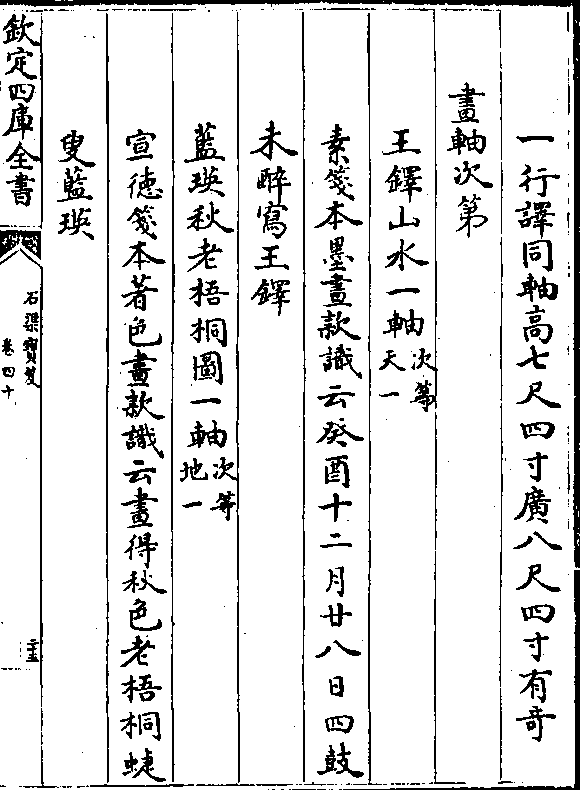 一行譯同軸高七尺四寸廣八尺四寸有奇
畫軸次第
王鐸山水一軸次等天一
素箋本墨畫款識云癸酉十二月廿八日四鼓
未醉寫王鐸
藍瑛秋老梧桐圖一軸次等地一
宣德箋本著色畫款識云畫得秋色老梧桐蜨
叟藍瑛
欽定四庫全書
石渠寶笈
卷四十
二十五